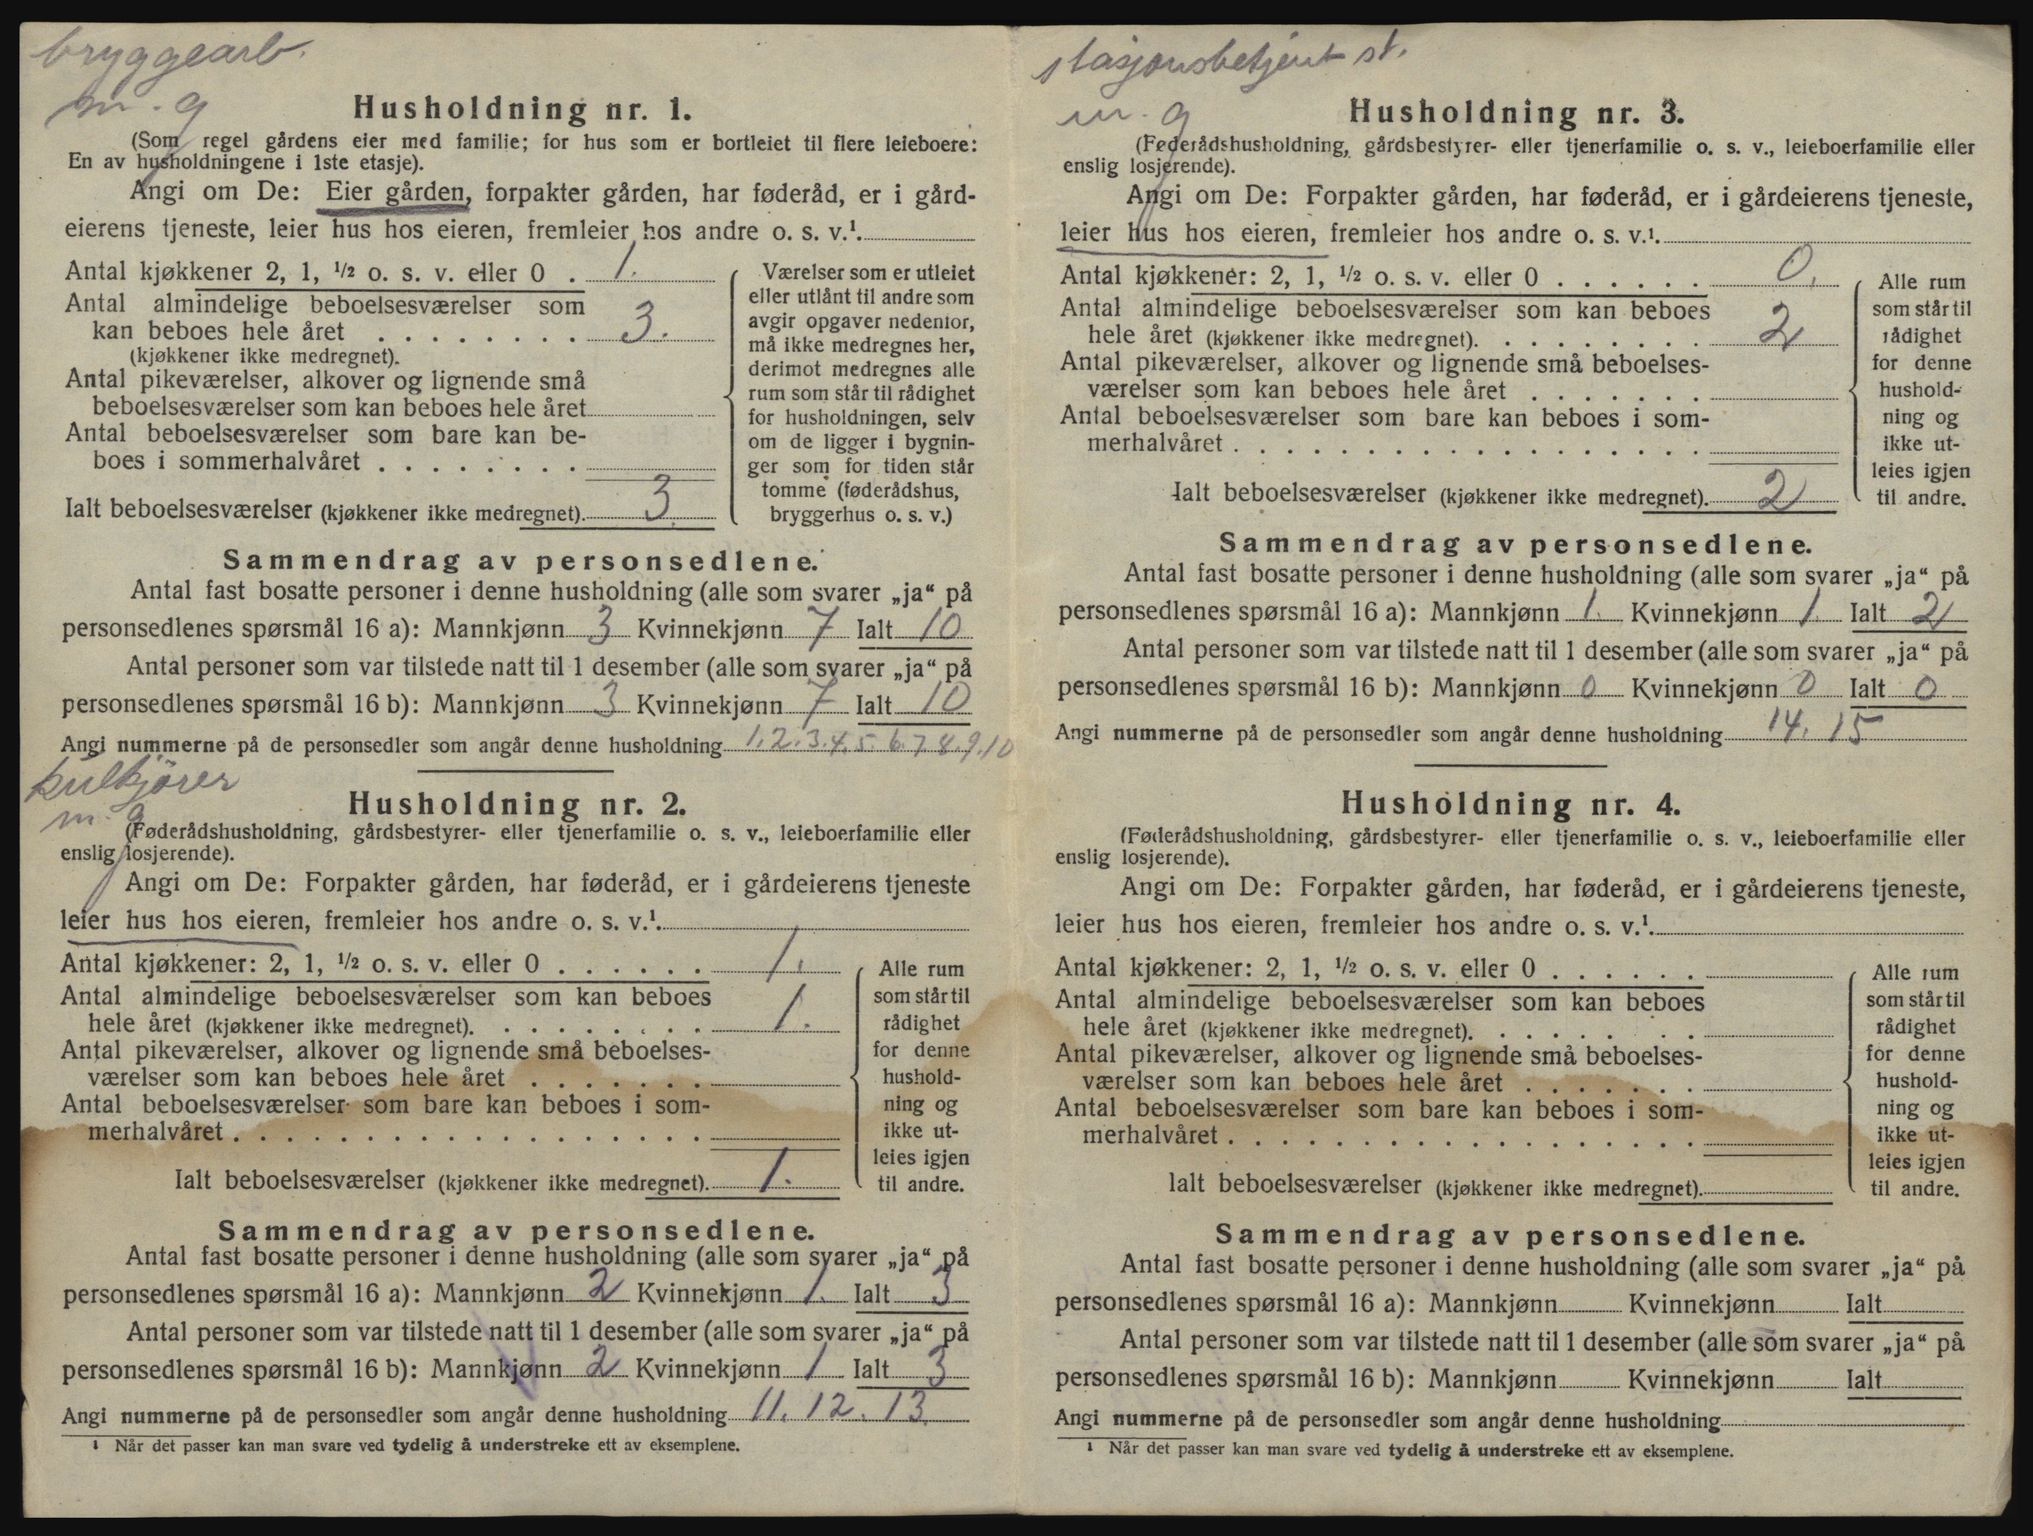 bryggearb.
m. g
Husholdning nr. 1.
(Som regel gårdens eier med familie; for hus som er bortleiet til flere leieboere:
En av husholdningene i 1ste etasje).
Angi om De: Eier gården, forpakter gården, har føderåd, er i gård-
eierens tjeneste, leier hus hos eieren, fremleier hos andre o. s. v.¹.
Antal kjøkkener 2, 1, ½ o. s. v. eller 0 . 1.
Antal almindelige beboelsesværelser som
kan beboes hele året . . . . . . . . 3.
(kjøkkener ikke medregnet).
Antal pikeværelser, alkover og lignende små
beboelsesværelser som kan beboes hele året
Antal beboelsesværelser som bare kan be-
boes i sommerhalvåret . . . . . . . .
Ialt beboelsesværelser (kjøkkener ikke medregnet). 3.
Værelser som er utleiet
eller utlånt til andre som
avgir opgaver nedenfor,
må ikke medregnes her,
derimot medregnes alle
rum som står til rådighet
for husholdningen, selv
om de ligger i bygnin-
ger som for tiden står
tomme (føderådshus,
bryggerhus o. s. v.)
Sammendrag av personsedlene.
Antal fast bosatte personer i denne husholdning (alle som svarer „ja“ på
personsedlenes spørsmål 16 a): Mannkjønn 3 Kvinnekjønn 7 Ialt 10
Antal personer som var tilstede natt til 1 desember (alle som svarer „ja“ på
personsedlenes spørsmål 16 b): Mannkjønn 3 Kvinnekjønn 7 Ialt 10
Angi nummerne på de personsedler som angår denne husholdning 1.2.3.4.5.6.7.8.9.10
kulkjører
m. g
Husholdning nr. 2.
(Føderådshusholdning, gårdsbestyrer- eller tjenerfamilie o. s. v., leieboerfamilie eller
enslig losjerende).
Angi om De: Forpakter gården, har føderåd, er i gårdeierens tjeneste
leier hus hos eieren, fremleier hos andre o. s. v.¹.
Antal kjøkkener: 2, 1, ½ o. s. v. eller 0 . . . . . . 1.
Antal almindelige beboelsesværelser som kan beboes
hele året (kjøkkener ikke medregnet). . . . . . . . . 1.
Antal pikeværelser, alkover og lignende små beboelses-
værelser som kan beboes hele året . . . . . . .
Antal beboelsesværelser som bare kan beboes i som-
merhalvåret . . . . . . . . . . . . . . . . . .
Ialt beboelsesværelser (kjøkkener ikke medregnet). 1.
Alle rum
som står til
rådighet
for denne
hushold-
ning og
ikke ut-
leies igjen
til andre.
Sammendrag av personsedlene.
Antal fast bosatte personer i denne husholdning (alle som svarer „ja“ på
personsedlenes spørsmål 16 a): Mannkjønn 2 Kvinnekjønn 1. Ialt 3
Antal personer som var tilstede natt til 1 desember (alle som svarer „ja“ på
personsedlenes spørsmål 16 b): Mannkjønn 2 Kvinnekjønn 1 Ialt 3
Angi nummerne på de personsedler som angår denne husholdning 11. 12. 13.
¹ Når det passer kan man svare ved tydelig å understreke ett av eksemplene.
stasjonsbetjent st.
m. g
Husholdning nr. 3.
(Føderådshusholdning, gårdsbestyrer- eller tjenerfamilie o. s. v., leieboerfamilie eller
enslig losjerende).
Angi om De: Forpakter gården, har føderåd, er i gårdeierens tjeneste,
leier hus hos eieren, fremleier hos andre o. s. v.¹.
Antal kjøkkener: 2, 1, ½ o. s. v. eller 0 . . . . . . 0.
Antal almindelige beboelsesværelser som kan beboes
hele året (kjøkkener ikke medregnet). . . . . . . . . 2
Antal pikeværelser, alkover og lignende små beboelses-
værelser som kan beboes hele året . . . . . . .
Antal beboelsesværelser som bare kan beboes i som-
merhalvåret . . . . . . . . . . . . . . . . . .
Ialt beboelsesværelser (kjøkkener ikke medregnet). 2
Alle rum
som står til
rådighet
for denne
hushold-
ning og
ikke ut-
leies igjen
til andre.
Sammendrag av personsedlene.
Antal fast bosatte personer i denne husholdning (alle som svarer „ja“ på
personsedlenes spørsmål 16 a): Mannkjønn 1. Kvinnekjønn 1. Ialt 2
Antal personer som var tilstede natt til 1 desember (alle som svarer „ja“ på
personsedlenes spørsmål 16 b): Mannkjønn 0 Kvinnekjønn 0 Ialt 0
Angi nummerne på de personsedler som angår denne husholdning 14. 15
Husholdning nr. 4.
(Føderådshusholdning, gårdsbestyrer- eller tjenerfamilie o. s. v., leieboerfamilie eller
enslig losjerende).
Angi om De: Forpakter gården, har føderåd, er i gårdeierens tjeneste,
leier hus hos eieren, fremleier hos andre o. s. v.¹.
Antal kjøkkener: 2, 1, ½ o. s. v. eller 0 . . . . . .
Antal almindelige beboelsesværelser som kan beboes
hele året (kjøkkener ikke medregnet). . . . . . . . .
Antal pikeværelser, alkover og lignende små beboelses-
værelser som kan beboes hele året . . . . . . .
Antal beboelsesværelser som bare kan beboes i som-
merhalvåret . . . . . . . . . . . . . . . . . .
Ialt beboelsesværelser (kjøkkener ikke medregnet).
Alle rum
som står til
rådighet
for denne
hushold-
ning og
ikke ut-
leies igjen
til andre.
Sammendrag av personsedlene.
Antal fast bosatte personer i denne husholdning (alle som svarer „ja“ på
personsedlenes spørsmål 16 a): Mannkjønn Kvinnekjønn Ialt
Antal personer som var tilstede natt til 1 desember (alle som svarer „ja“ på
personsedlenes spørsmål 16 b): Mannkjønn Kvinnekjønn Ialt
Angi nummerne på de personsedler som angår denne husholdning
¹ Når det passer kan man svare ved tydelig å understreke ett av eksemplene.